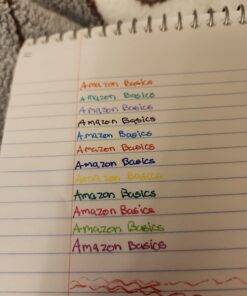 Amazon Basics
Amazon Basics
Amazon Basics
Amazon Basics
Amazon Basics
Amazon Basics
Amazon Basics
Amazon Basics
Amazon Basics
Amazon Basics
Amazon Basics
Amazon Basics